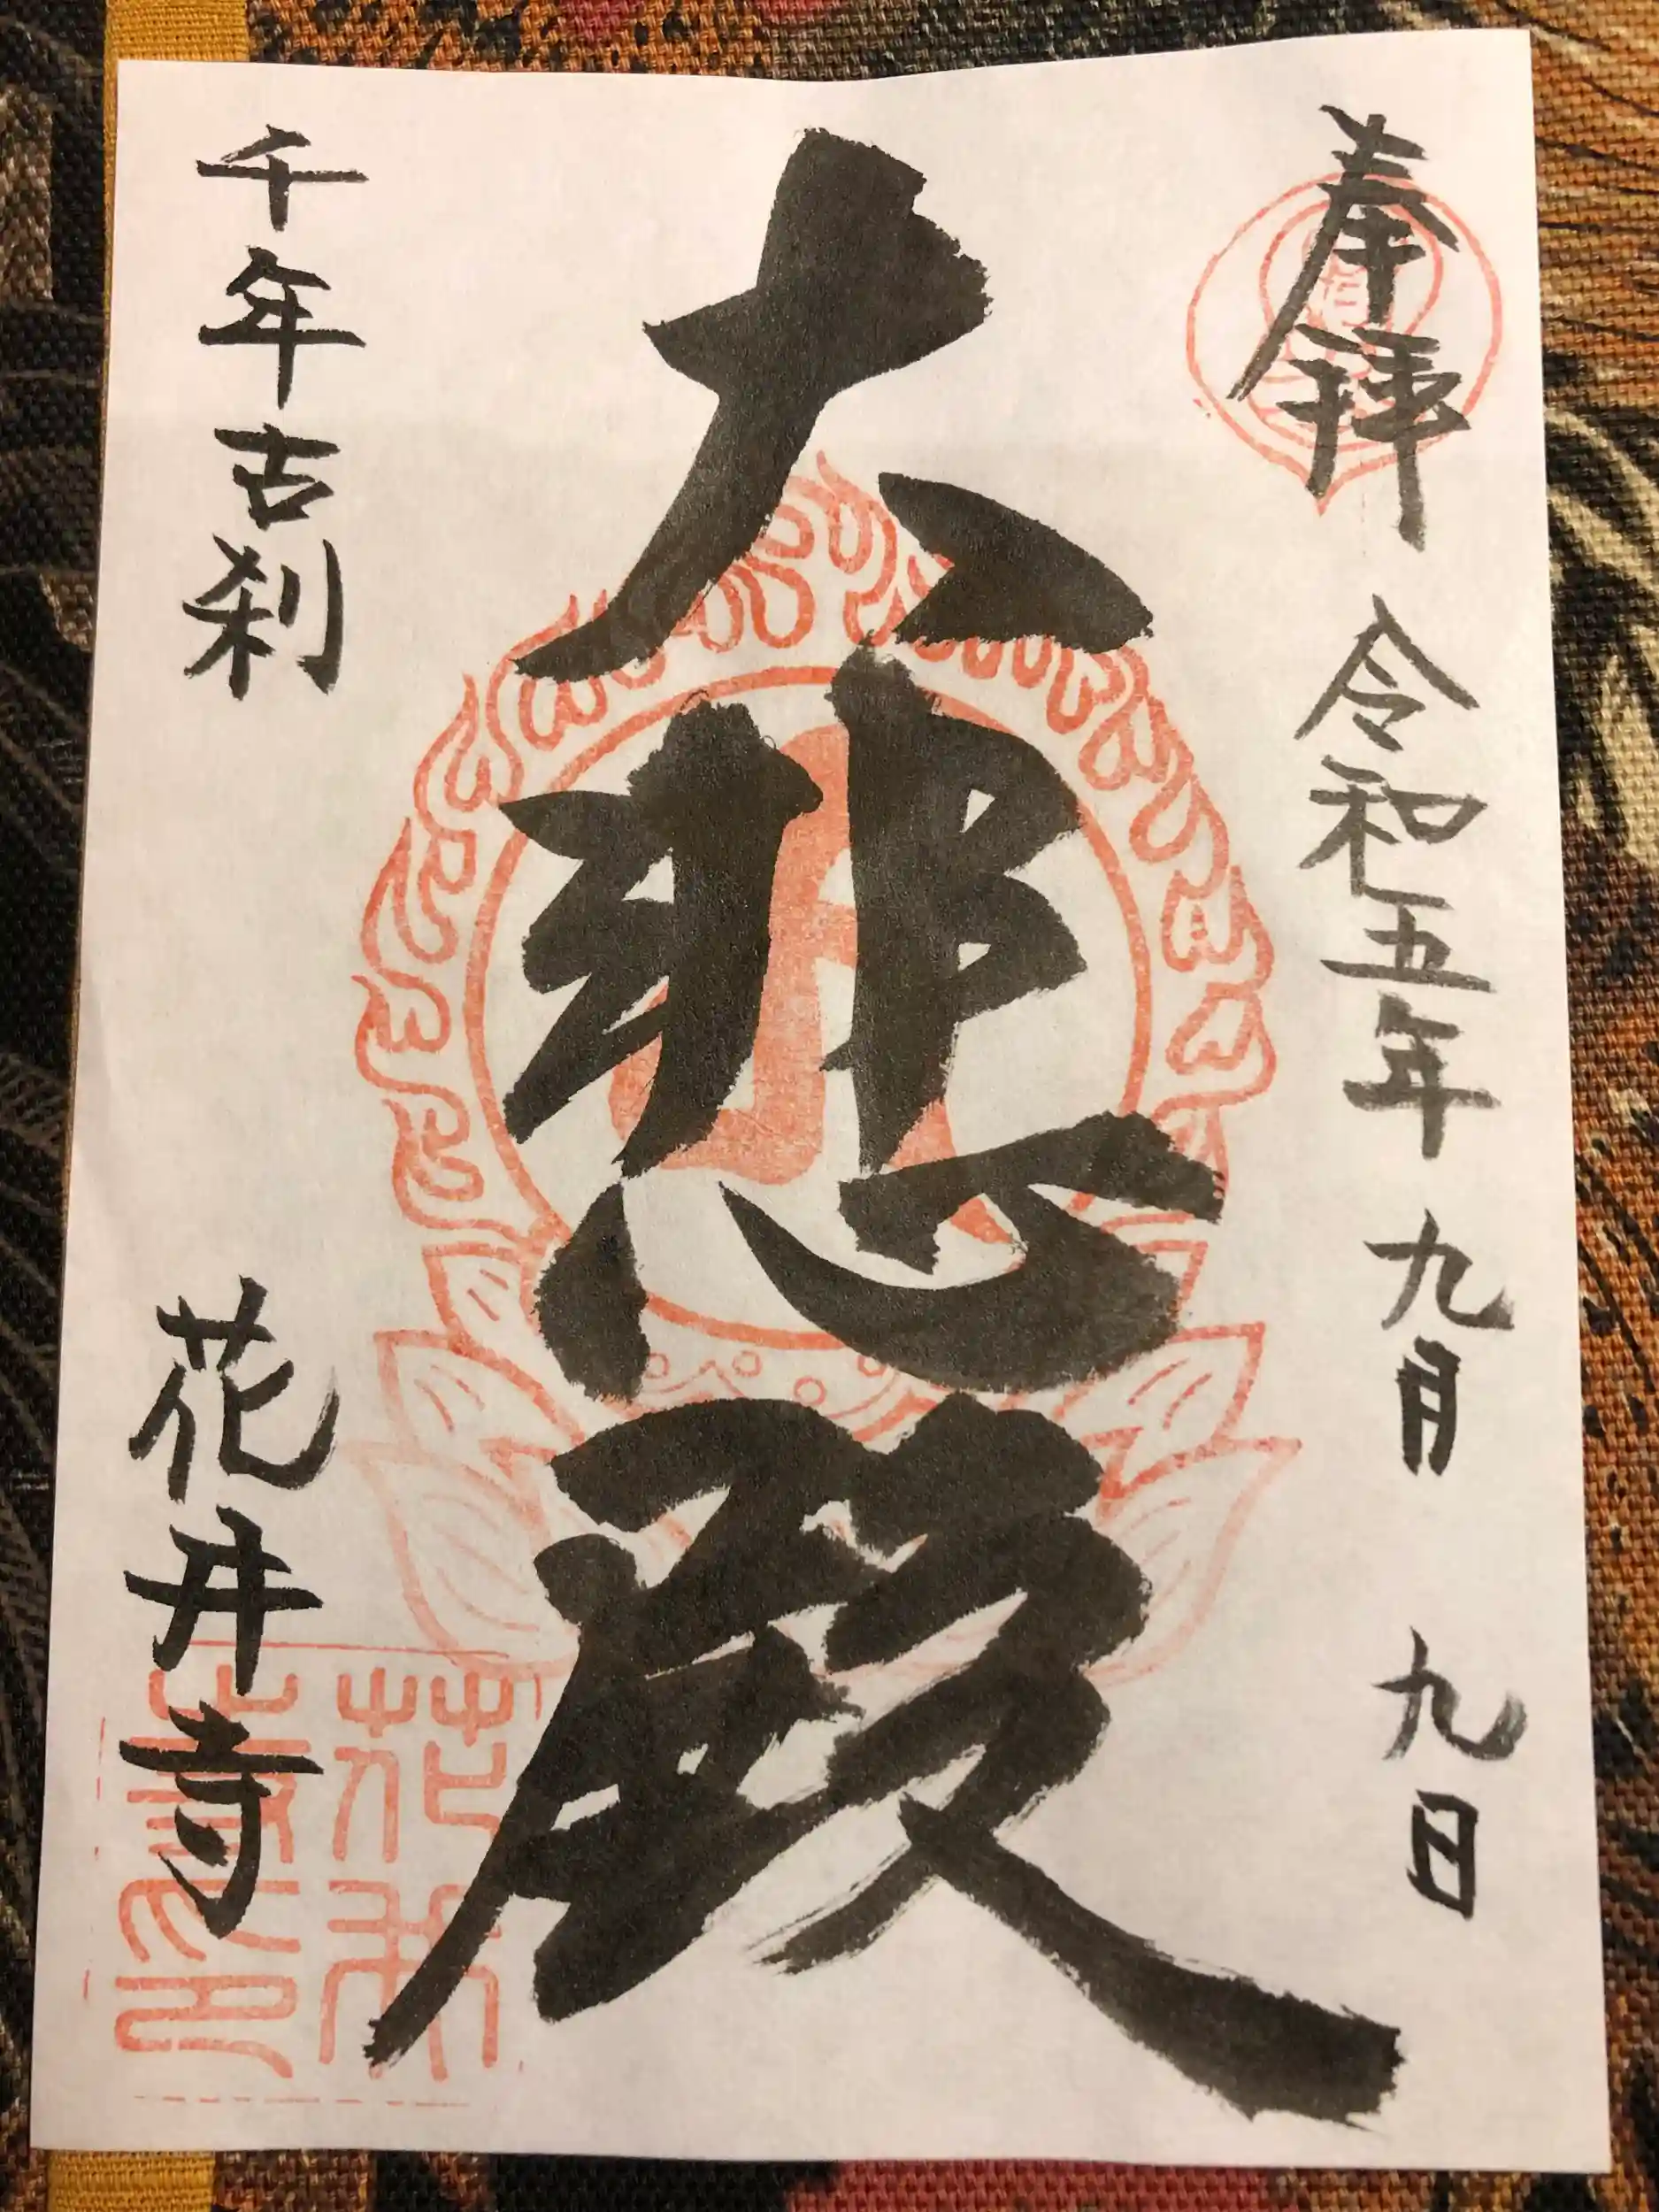 奉拝 令和五年 九月 九日
大悲殿
千年古刹 花井寺
花井寺印